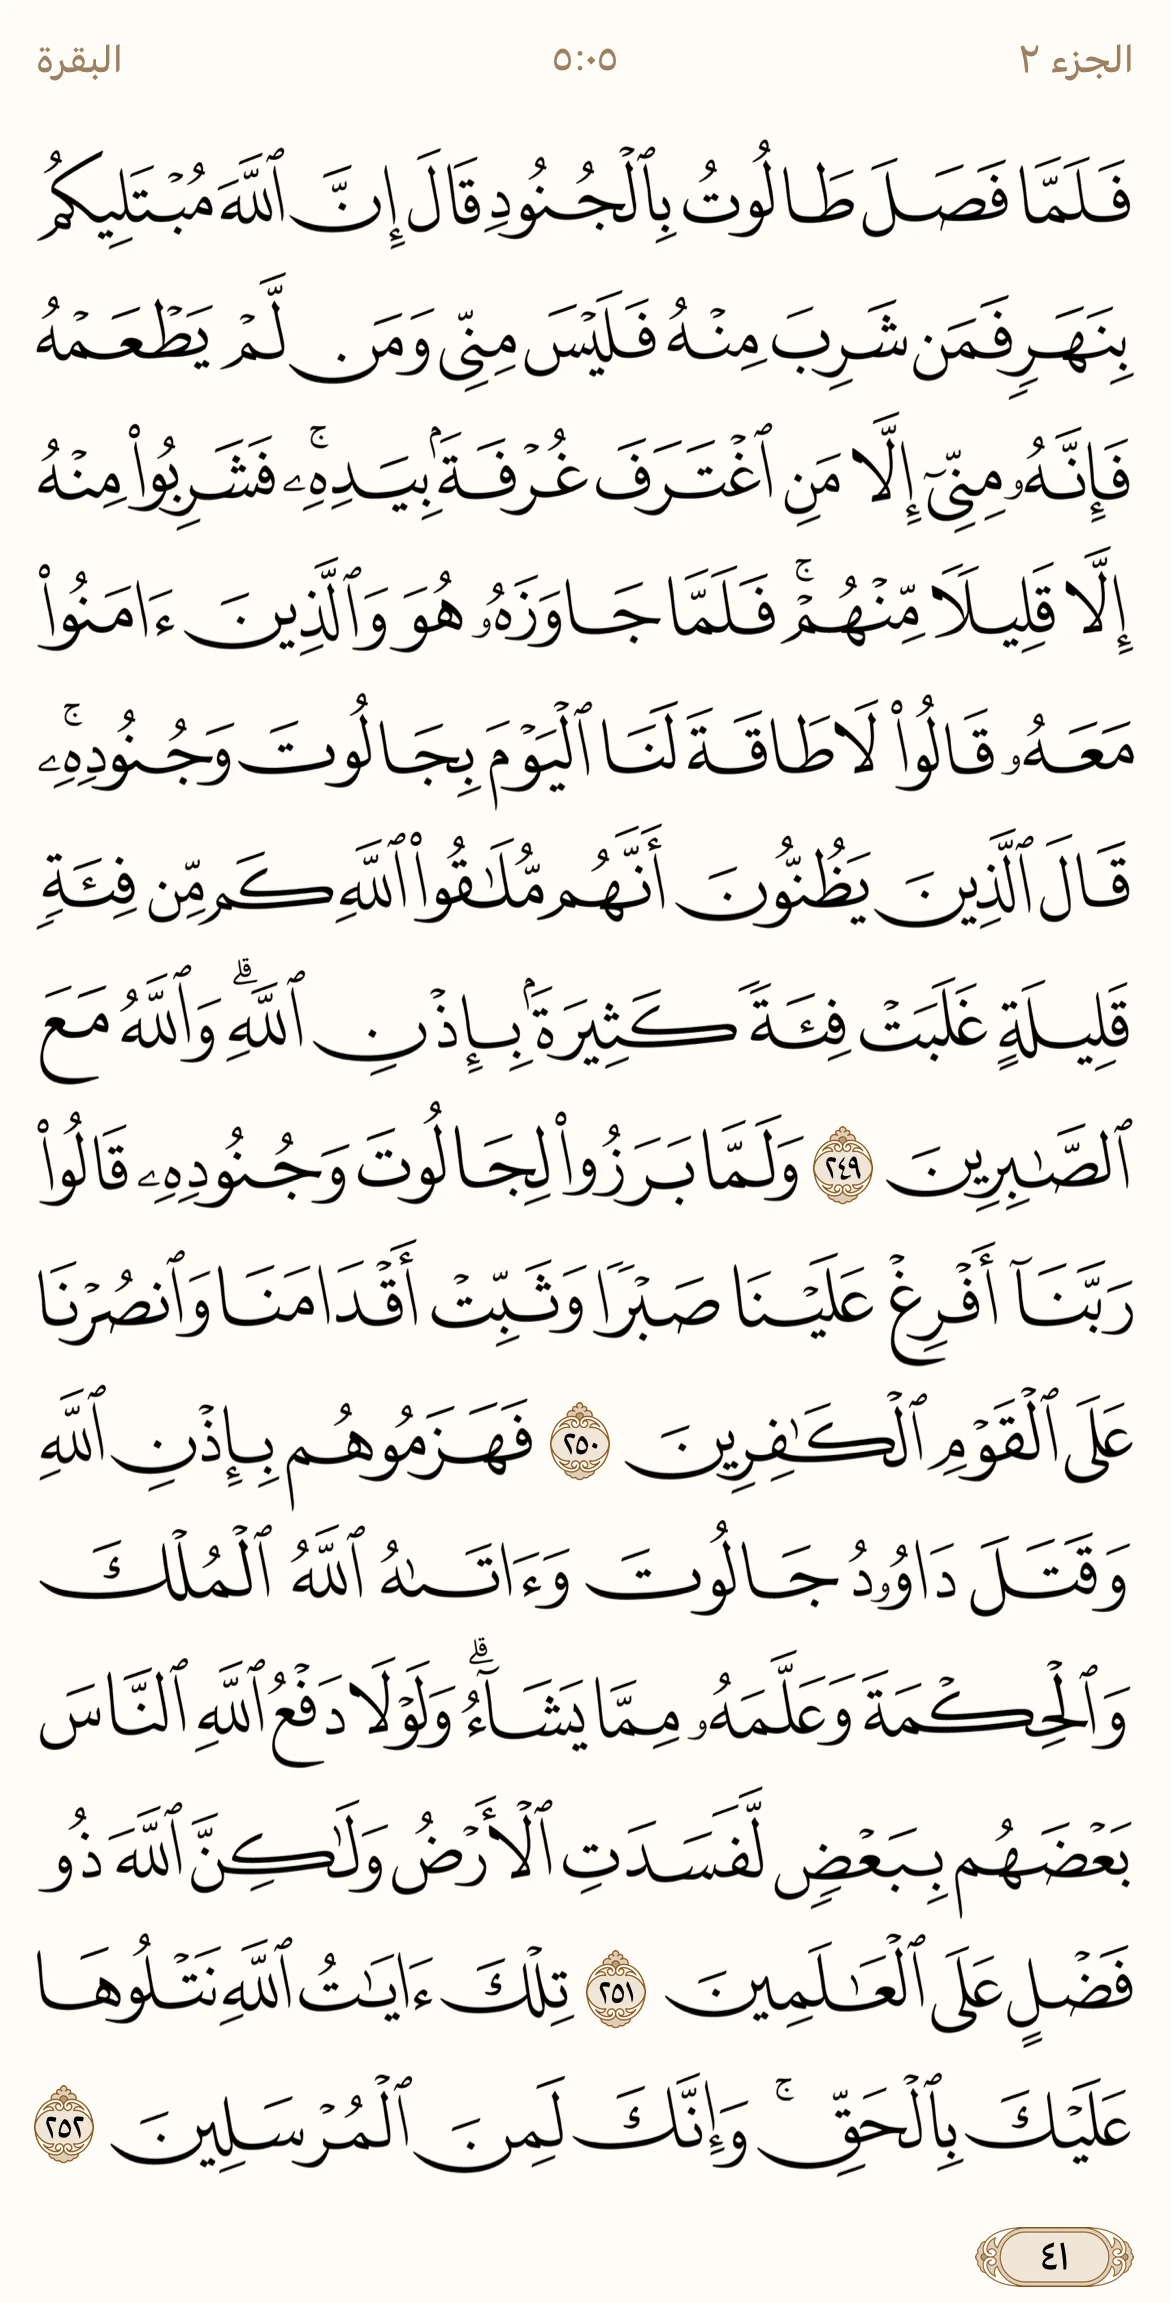 الجزء ٢
٥:٠٥
البقرة
فَلَمَّا فَصَلَ طَالُوتُ بِٱلْجُنُودِ قَالَ إِنَّ ٱللَّهَ مُبْتَلِيكُم
بِنَهَرٍ فَمَن شَرِبَ مِنْهُ فَلَيْسَ مِنِّى وَمَن لَّمْ يَطْعَمْهُ
فَإِنَّهُۥ مِنِّىٓ إِلَّا مَنِ ٱغْتَرَفَ غُرْفَةًۢ بِيَدِهِۦۚ فَشَرِبُوا۟ مِنْهُ
إِلَّا قَلِيلًا مِّنْهُمْۚ فَلَمَّا جَاوَزَهُۥ هُوَ وَٱلَّذِينَ ءَامَنُوا۟
مَعَهُۥ قَالُوا۟ لَا طَاقَةَ لَنَا ٱلْيَوْمَ بِجَالُوتَ وَجُنُودِهِۦۚ
قَالَ ٱلَّذِينَ يَظُنُّونَ أَنَّهُم مُّلَـٰقُوا۟ ٱللَّهِ كَم مِّن فِئَةٍ
قَلِيلَةٍ غَلَبَتْ فِئَةً كَثِيرَةًۢ بِإِذْنِ ٱللَّهِۗ وَٱللَّهُ مَعَ
ٱلصَّـٰبِرِينَ ٢٤٩ وَلَمَّا بَرَزُوا۟ لِجَالُوتَ وَجُنُودِهِۦ قَالُوا۟
رَبَّنَآ أَفْرِغْ عَلَيْنَا صَبْرًا وَثَبِّتْ أَقْدَامَنَا وَٱنصُرْنَا
عَلَى ٱلْقَوْمِ ٱلْكَـٰفِرِينَ ٢٥٠ فَهَزَمُوهُم بِإِذْنِ ٱللَّهِ
وَقَتَلَ دَاوُۥدُ جَالُوتَ وَءَاتَىٰهُ ٱللَّهُ ٱلْمُلْكَ
وَٱلْحِكْمَةَ وَعَلَّمَهُۥ مِمَّا يَشَآءُۗ وَلَوْلَا دَفْعُ ٱللَّهِ ٱلنَّاسَ
بَعْضَهُم بِبَعْضٍ لَّفَسَدَتِ ٱلْأَرْضُ وَلَـٰكِنَّ ٱللَّهَ ذُو
فَضْلٍ عَلَى ٱلْعَـٰلَمِينَ ٢٥١ تِلْكَ ءَايَـٰتُ ٱللَّهِ نَتْلُوهَا
عَلَيْكَ بِٱلْحَقِّۚ وَإِنَّكَ لَمِنَ ٱلْمُرْسَلِينَ ٢٥٢
٤١